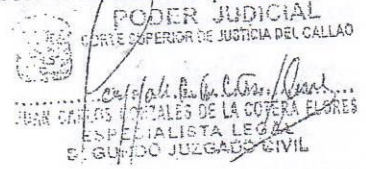 PODER JUDICIAL
CORTE SUPERIOR DE JUSTICIA DEL CALLAO
JUAN CARLOS GONZALES DE LA COTERA FLORES
ESPECIALISTA LEGAL
SEGUNDO JUZGADO CIVIL